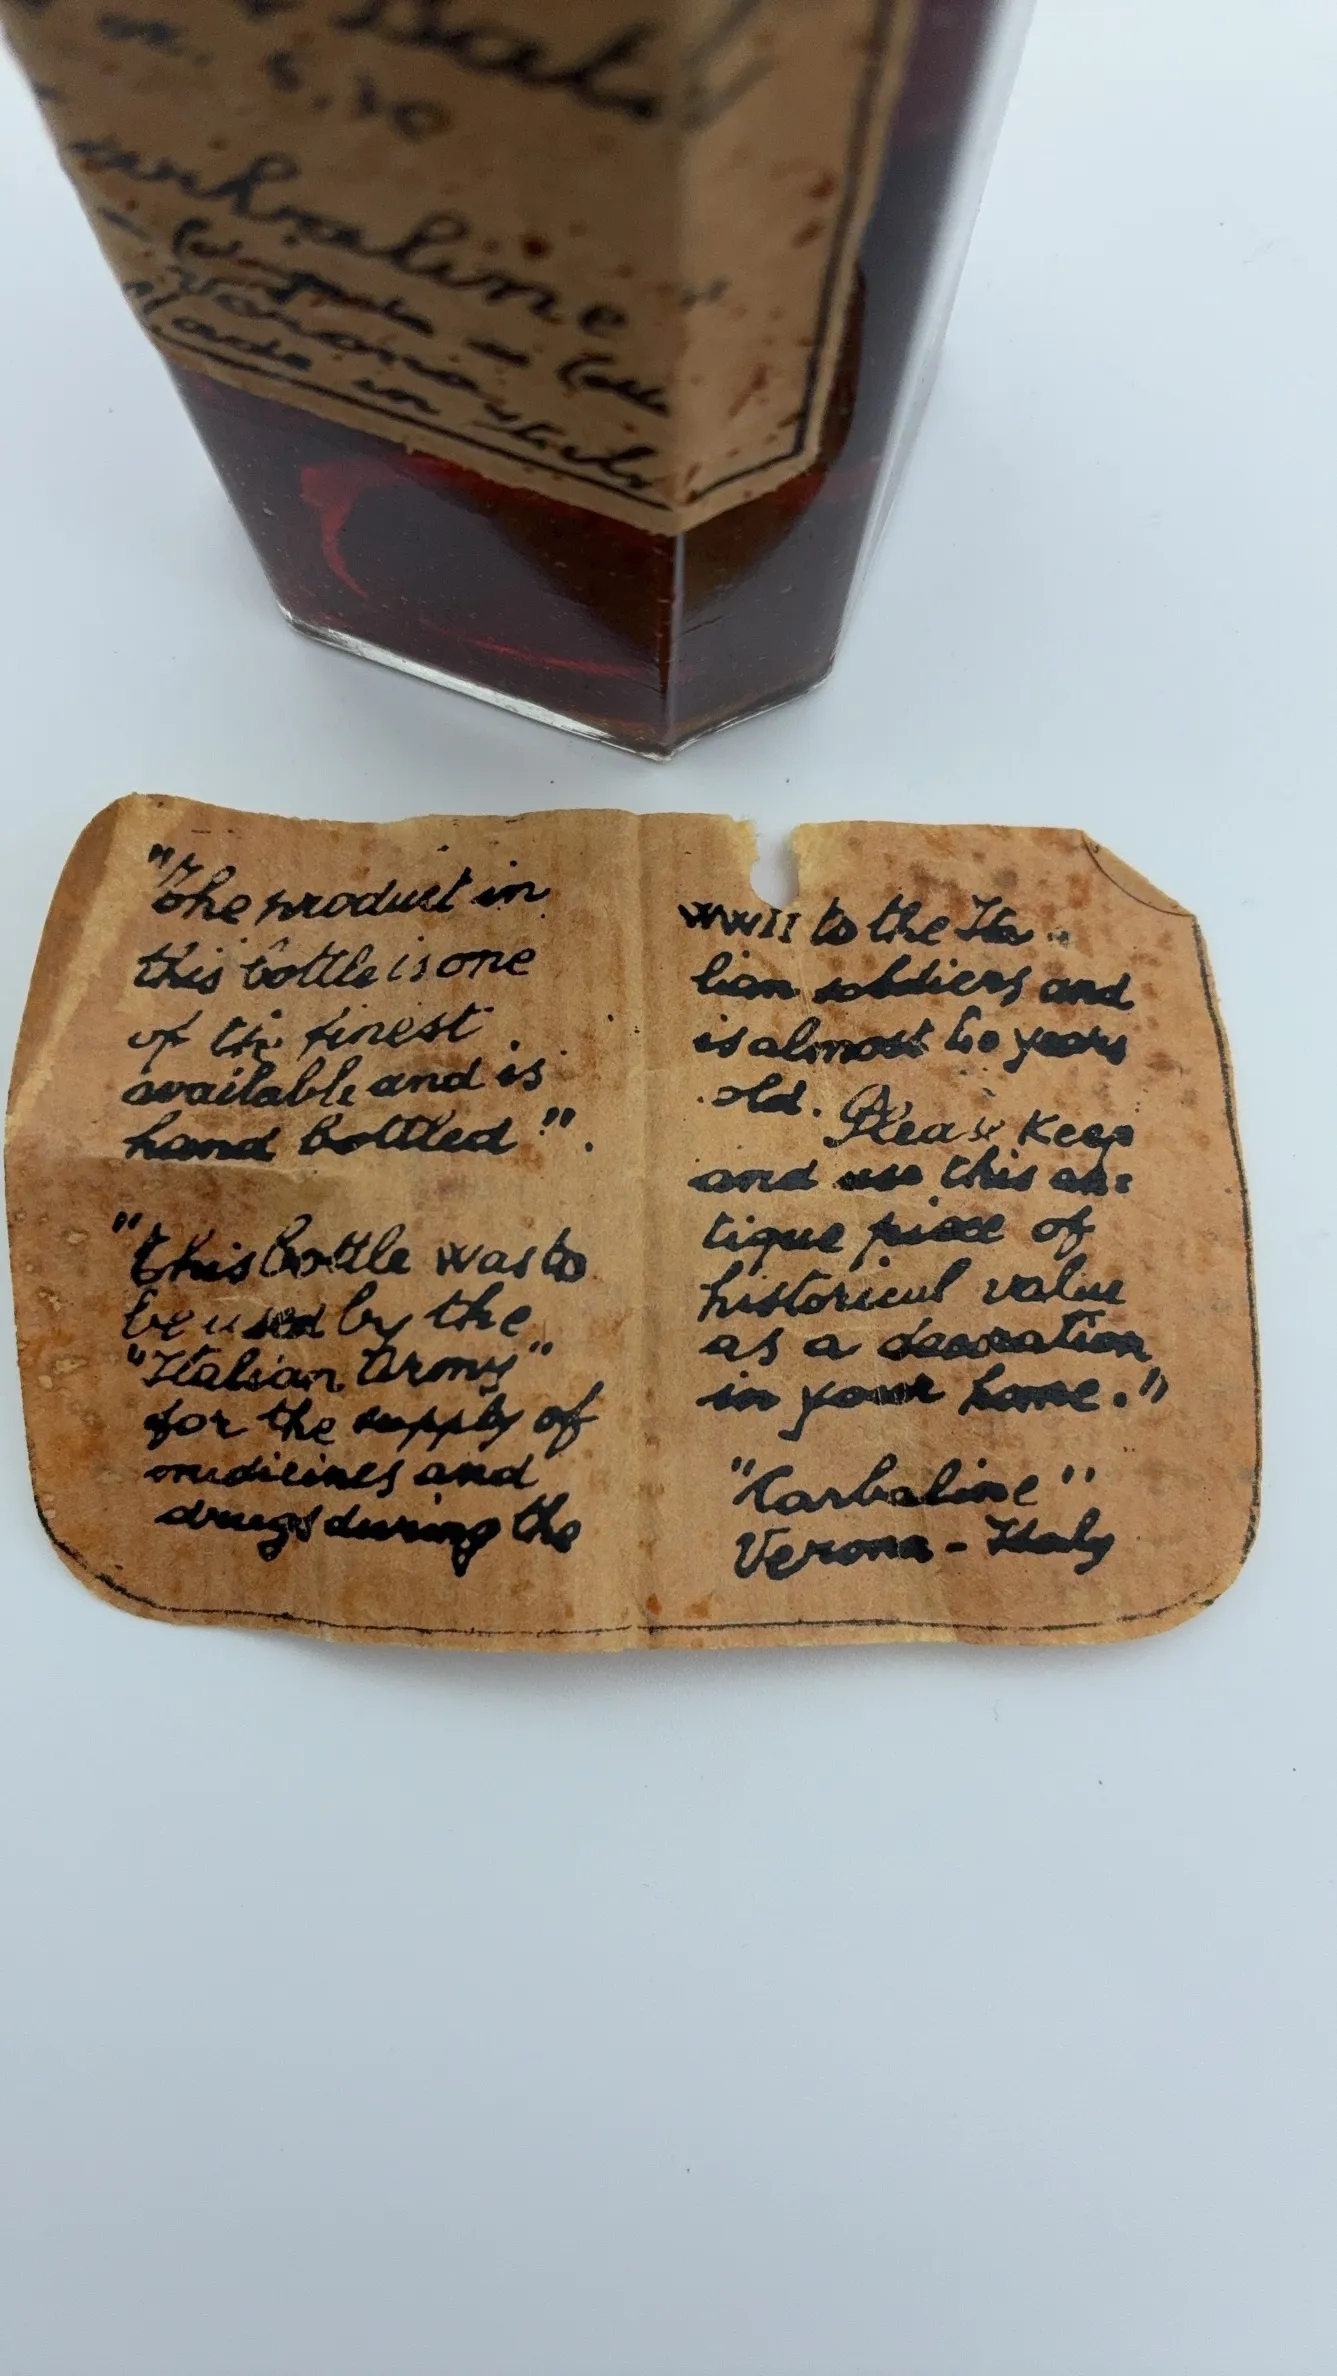 Bath
n. 6,70
Verona, Italy
Made in Italy
"The product in
this bottle is one
of the finest
available and is
hand bottled".
"this bottle was to
be used by the
"Italian Army"
for the supply of
medicines and
drugs during the
WWII to the Ita-
lian soldiers and
is almost 60 years
old.
Please Keep
and use this an-
tique piece of
historical value
as a decoration
in your home."
"Carbaline"
Verona - Italy